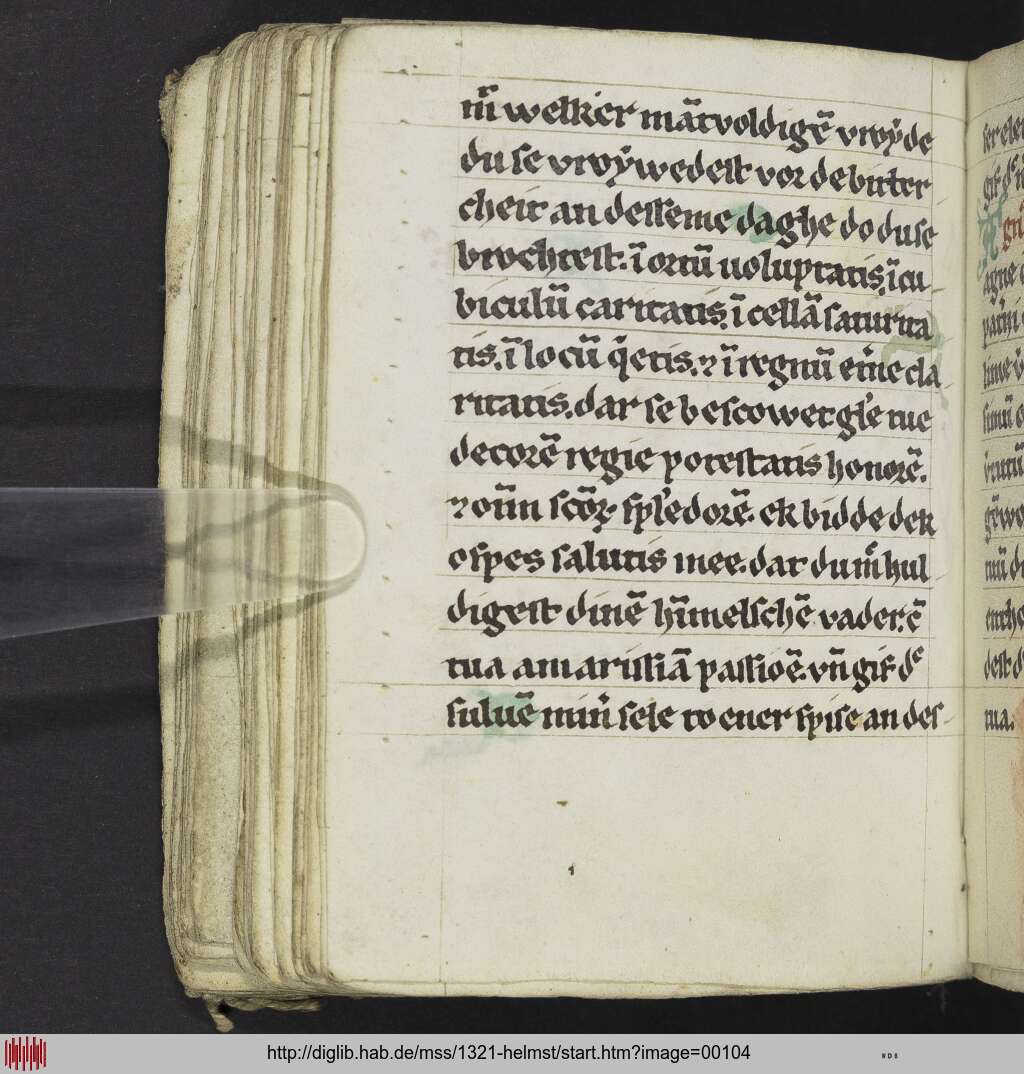 m̄ welker māt voldigē vroẏde
du se vroẏwedest vor de bitter
cheit an desseme daghe do du se
brochtest. ī ortū uoluptatis, ī cu
biculū caritatis, ī cellā saturita
tis, ī locū q̄etis, ⁊ ī regnū et̄ne cla
ritatis, dat se bescowet gl̄e tue
decorē regie potestatis honorē.
⁊ om̄ scōꝝ spl̄edorē. ek bidde dek
o spes salutis mee. dat du m̄ hul
digest dinē hīmelschē vader. ē
tua amarissiā passioē. vn̄ gif dͤ
suluē min̄ sele to ener spise an des
http://diglib.hab.de/mss/1321-helmst/start.htm?image=00104